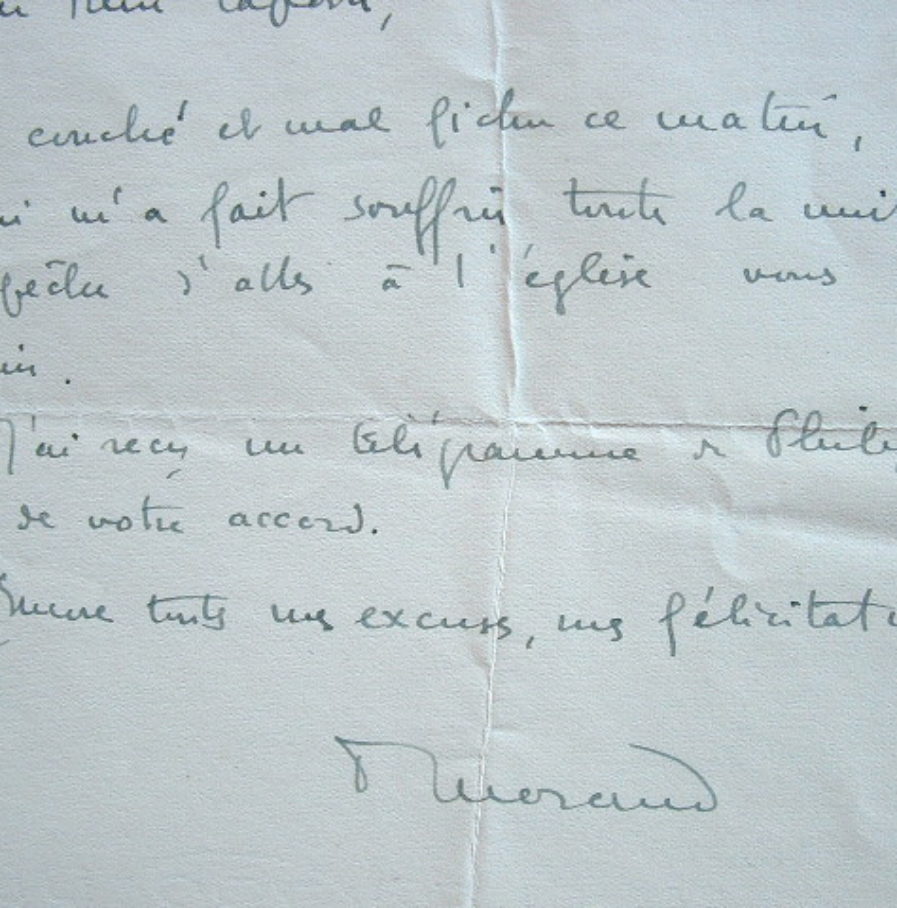 couché et mal fichu ce matin,
m'a fait souffrir toute la nuit
pêché d'aller à l'église vous
J'ai reçu un télégramme de Philip
de votre accord.
Encore toutes mes excuses, mes félicitati
Morand